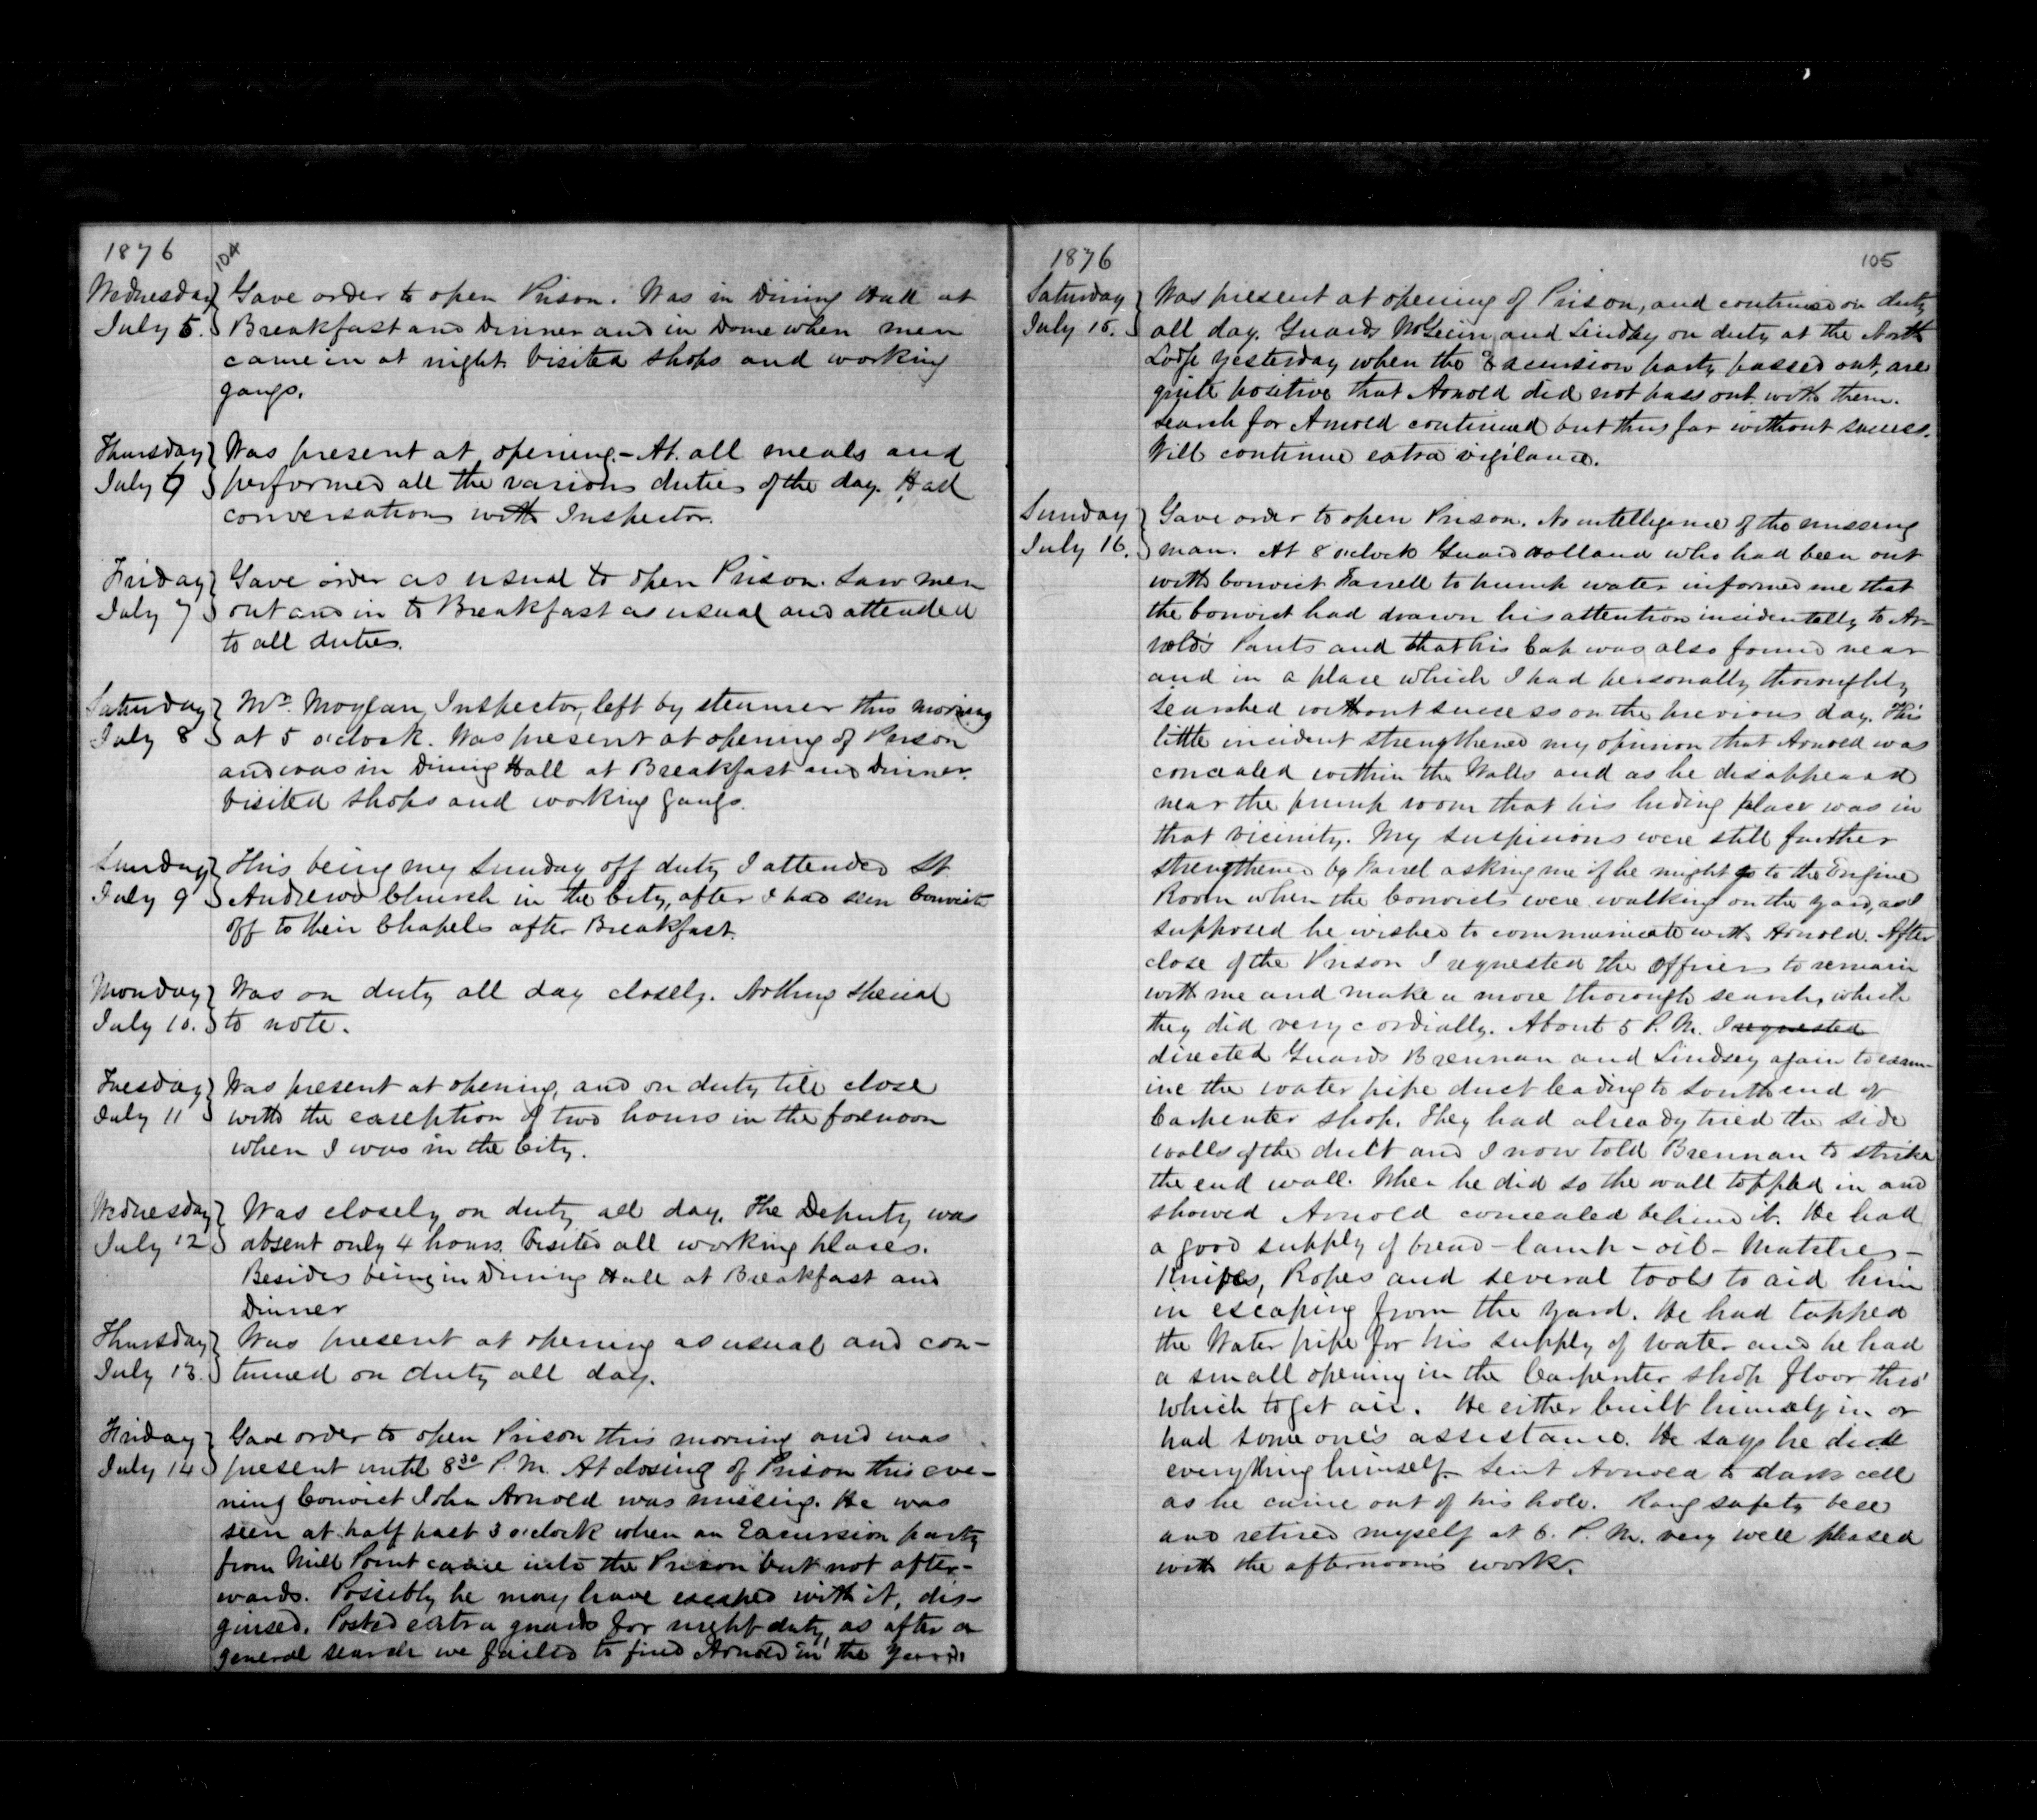 1876
104
Wednesday July 5. Gave order to open Prison. Was in Dining Hall at
Breakfast and Dinner and in Dome when men
came in at night. Visited shops and working
gangs.
Thursday July 6 Was present at opening - At all meals and
performed all the various duties of the day. Had
conversations with Inspector.
Friday July 7 Gave order as usual to open Prison. Saw men
out and in to Breakfast as usual and attended
to all duties.
Saturday July 8 Mr. Moylan, Inspector, left by steamer this morning
at 5 o'clock. Was present at opening of Prison
and was in Dining Hall at Breakfast and Dinner.
Visited shops and working gangs.
Sunday July 9 This being my Sunday off duty I attended St.
Andrews Church in the City, after I had seen Convicts
off to their Chapels after Breakfast.
Monday July 10. Was on duty all day closely. Nothing special
to note.
Tuesday July 11 Was present at opening, and on duty till close
with the exception of two hours in the forenoon
when I was in the City.
Wednesday July 12 Was closely on duty all day. The Deputy was
absent only 4 hours. Visited all working places.
Besides being in Dining Hall at Breakfast and
Dinner
Thursday July 13. Was present at opening as usual and con-
tinued on duty all day.
Friday July 14 Gave order to open Prison this morning and was
present until 8 30 P.M. At closing of Prison this eve-
ning Convict John Arnold was missing. He was
seen at half past 3 o'clock when an Excursion party
from Mill Point came into the Prison but not after-
wards. Possibly he may have escaped with it, dis-
guised. Posted extra guards for night duty, as after a
general search we failed to find Arnold in the Yard.
1876
105
Saturday July 15. Was present at opening of Prison, and continued on duty
all day. Guards McGeein and Lindsay on duty at the North
Lodge yesterday when the Excursion party passed out, are
quite positive that Arnold did not pass out with them.
Search for Arnold continued but thus far without success.
Will continue extra vigilance.
Sunday July 16. Gave order to open Prison. No intelligence of the missing
man. At 8 o'clock Guard Holland who had been out
with Convict Farrell to pump water informed me that
the Convict had drawn his attention incidentally to Ar-
nold's Pants and that his Cap was also found near
and in a place which I had personally thoroughly
searched without success on the previous day. This
little incident strengthened my opinion that Arnold was
concealed within the Walls and as he disappeared
near the pump room that his hiding place was in
that vicinity. My suspicions were still further
strengthened by Farrel asking me if he might go to the Engine
Room when the Convicts were walking on the yard, as I
supposed he wished to communicate with Arnold. After
close of the Prison I requested the Officers to remain
with me and make a more thorough search, which
they did very cordially. About 5 P.M. I requested
directed Guards Brennan and Lindsey again to exam-
ine the water pipe duct leading to South end of
Carpenter shop. They had already tried the side
walls of the duct and I now told Brennan to strike
the end wall. When he did so the wall toppled in and
showed Arnold concealed behind it. He had
a good supply of bread - lamp - oil - Matches -
Knifes, Ropes and several tools to aid him
in escaping from the yard. He had tapped
the Water pipe for his supply of water and he had
a small opening in the Carpenter shop floor thro'
which to get air. He either built himself in or
had some one's assistance. He says he did
everything himself. Sent Arnold to dark cell
as he came out of his hole. Rang safety bell
and retired myself at 6. P.M. very well pleased
with the afternoon's work.